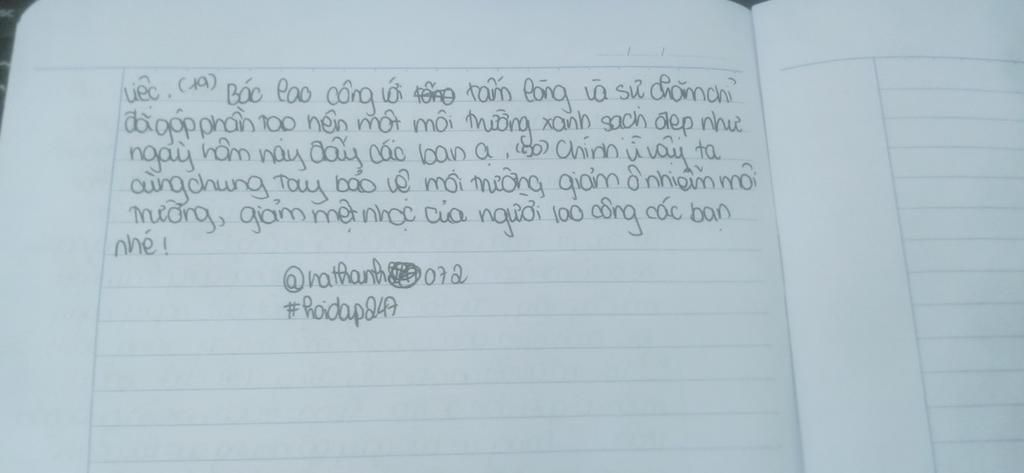 việc. (19) Bác lao công với tấm lòng và sự chăm chỉ
đã góp phần tạo nên một môi trường xanh sạch đẹp như
ngày hôm nay đấy các bạn ạ. (20) Chính vì vậy ta
cùng chung tay bảo vệ môi trường giảm ô nhiễm môi
trường, giảm mệt nhọc của người lao công các bạn
nhé!
@hathanh072
#hoidap247